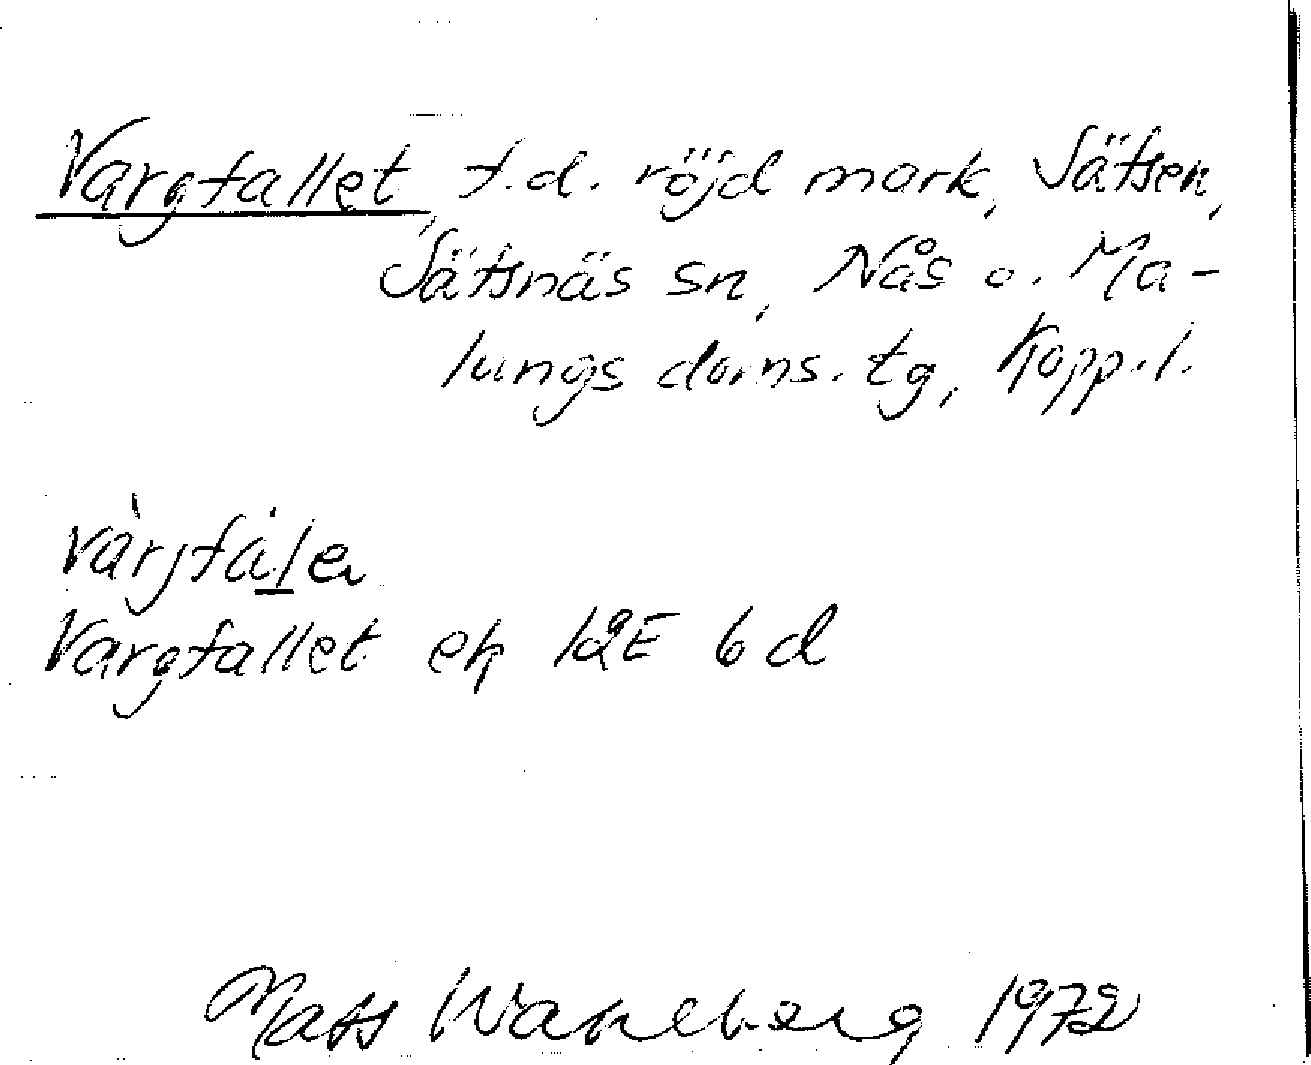 Vargfallet, f.d. röjd mark, Sätsen,
Sätsnäs sn, Nås o. Ma-
lungs doms. tg, Kopp. l.
Vargfallet ek 12E 6d
Mats Wahlberg 1972